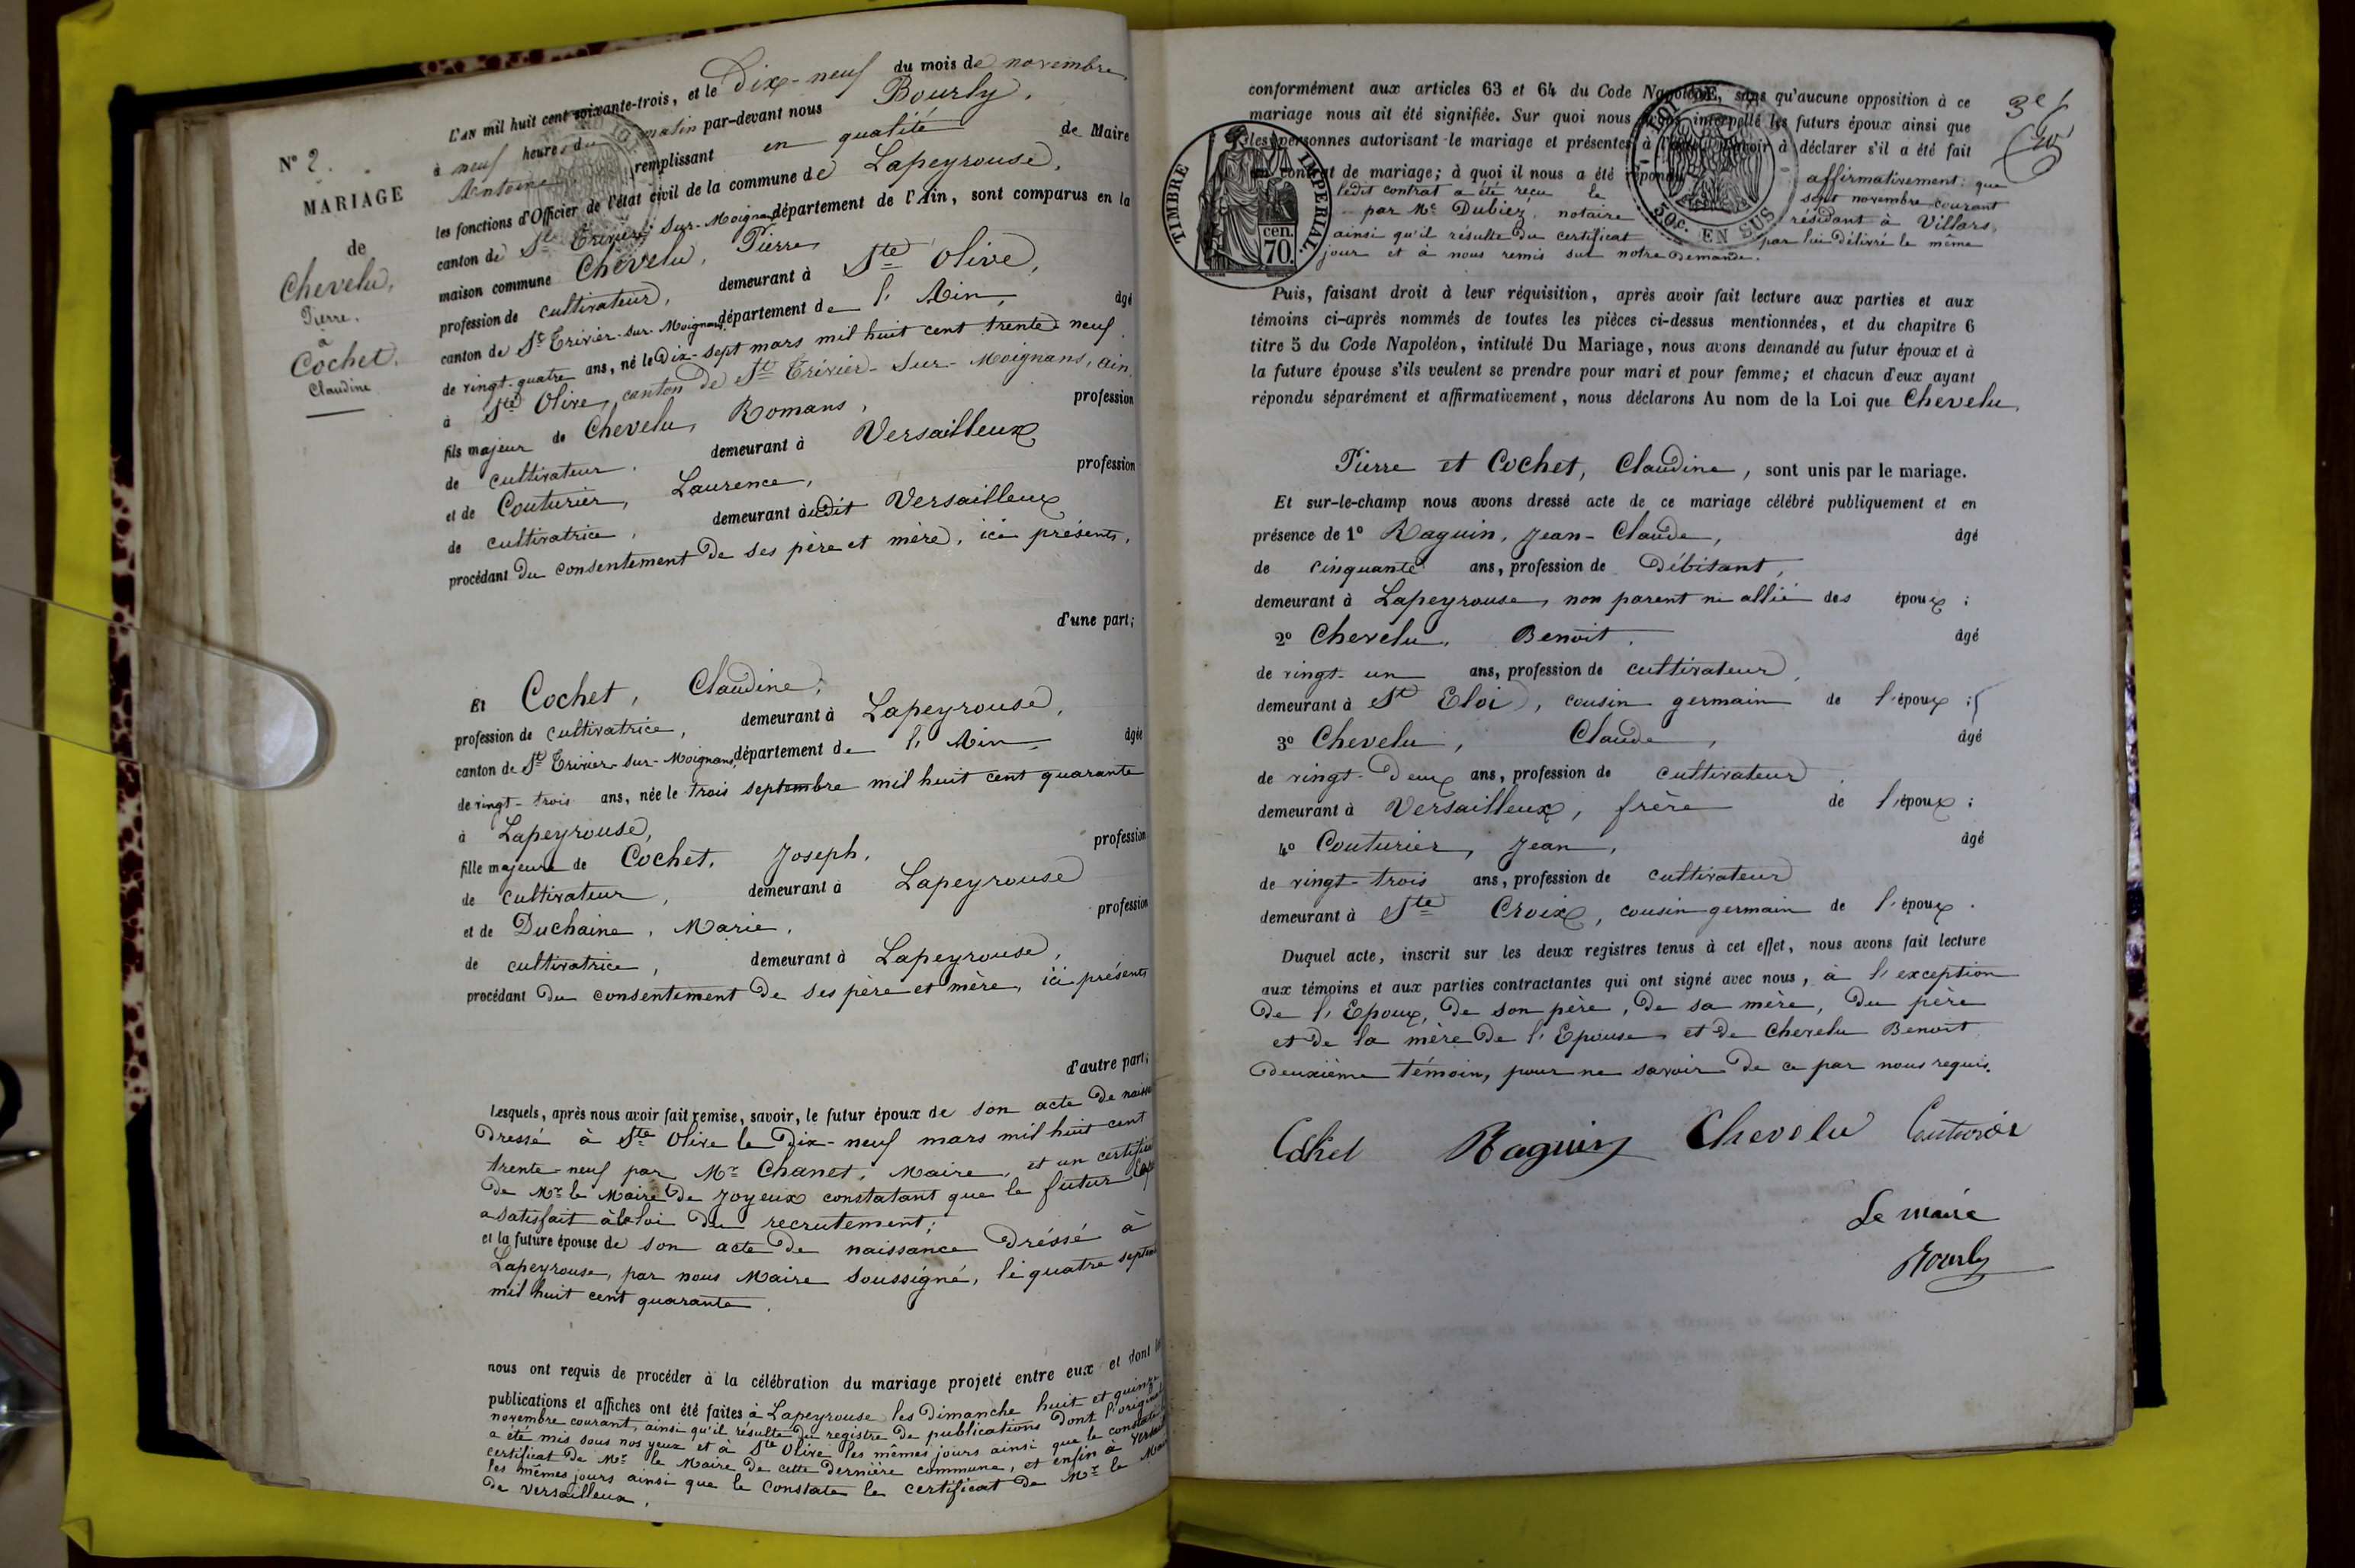 N° 2.
MARIAGE
de
Chevelu,
Pierre.
à
Cochet.
Claudine
L'AN mil huit cent soixante-trois, et le Dix-neuf du mois de novembre
à neuf heures du matin par-devant nous Bourly,
Antoine remplissant en qualité de Maire
les fonctions d'Officier de l'état civil de la commune de Lapeyrouse,
canton de St Trivier-Sur-Moignans département de l'Ain, sont comparus en la
maison commune Chevelu, Pierre,
profession de cultivateur, demeurant à Ste Olive,
canton de St Trivier-sur-Moignans, département de l'Ain, âgé
de vingt-quatre ans, né le Dix-sept mars mil huit cent trente neuf
à Ste Olive, canton de St Trivier-Sur-Moignans, ain,
fils majeur de Chevelu, Romans, profession
de cultivateur, demeurant à Versailleux
et de Couturier, Laurence, profession
de cultivatrice, demeurant àudit Versailleux
procédant Du consentement De ses père et mère, ici présents,
d'une part;
Et Cochet, Claudine,
profession de cultivatrice, demeurant à Lapeyrouse,
canton de St Trivier-sur-Moignans, département de l'Ain, âgée
de vingt-trois ans, née le trois septembre mil huit cent quarante
à Lapeyrouse,
fille majeure de Cochet, Joseph, profession
de cultivateur, demeurant à Lapeyrouse
et de Duchaine, Marie, profession
de cultivatrice, demeurant à Lapeyrouse,
procédant Du consentement De ses père et mère, ici présents
d'autre part;
Lesquels, après nous avoir fait remise, savoir, le futur époux de son acte De naiss
Dressé à Ste Olive le Dix-neuf mars mil huit cent
trente-neuf par Mr Chanet, Maire, et un certificat
De Mr le Maire De Joyeux constatant que le futur
a satisfait à la loi Du recrutement;
et la future épouse de son acte De naissance Dréssé à
Lapeyrouse, par nous Maire Soussigné, le quatre septem
mil huit cent quarante.
nous ont requis de procéder à la célébration du mariage projeté entre eux et dont les
publications et affiches ont été faites à Lapeyrouse les Dimanche huit et quinze
novembre courant, ainsi qu'il résulte Du registre De publications Dont l'original
a été mis sous nos yeux et à Ste Olive les mêmes jours ainsi que le constate le
certificat De Mr le Maire De cette Dernière commune, et enfin à Versaill
les mêmes jours ainsi que le constate le certificat De Mr le Mair
De Versailleux,
conformément aux articles 63 et 64 du Code Napoléon, sans qu'aucune opposition à ce
mariage nous ait été signifiée. Sur quoi nous avons interpellé les futurs époux ainsi que
les personnes autorisant le mariage et présentes à l'acte d'avoir à déclarer s'il a été fait
un contrat de mariage; à quoi il nous a été répondu affirmativement: que
ledit contrat a été reçu le sept novembre courant
par Me Dubiez, notaire résidant à Villars,
ainsi qu'il résulte Du certificat par lui Délivré le même
jour et à nous remis sur notre Demande.
TIMBRE IMPÉRIAL.
cen.
70.
50c. EN SUS
3e f
Puis, faisant droit à leur réquisition, après avoir fait lecture aux parties et aux
témoins ci-après nommés de toutes les pièces ci-dessus mentionnées, et du chapitre 6
titre 5 du Code Napoléon, intitulé Du Mariage, nous avons demandé au futur époux et à
la future épouse s'ils veulent se prendre pour mari et pour femme; et chacun d'eux ayant
répondu séparément et affirmativement, nous déclarons Au nom de la Loi que Chevelu,
Pierre et Cochet, Claudine, sont unis par le mariage.
Et sur-le-champ nous avons dressé acte de ce mariage célébré publiquement et en
présence de 1° Raguin, Jean-Claude, âgé
de cinquante ans, profession de Débitant,
demeurant à Lapeyrouse, non parent ni allié des époux;
2° Chevelu, Benoit. âgé
de vingt-un ans, profession de cultivateur,
demeurant à St Eloi, cousin germain de l'époux;
3° Chevelu, Claude, âgé
de vingt-Deux ans, profession de cultivateur
demeurant à Versailleux, frère de l'époux;
4° Couturier, Jean, âgé
de vingt-trois ans, profession de cultivateur
demeurant à Ste Croix, cousin germain de l'époux.
Duquel acte, inscrit sur les deux registres tenus à cet effet, nous avons fait lecture
aux témoins et aux parties contractantes qui ont signé avec nous, à l'exception
De l'Epoux, De son père, De sa mère, Du père
et De la mère De l'Epouse et De Chevelu Benoit
Deuxième témoin, pour ne savoir De ce par nous requis.
Cochet Raguin Chevelu Couturier
Le maire
Bourly